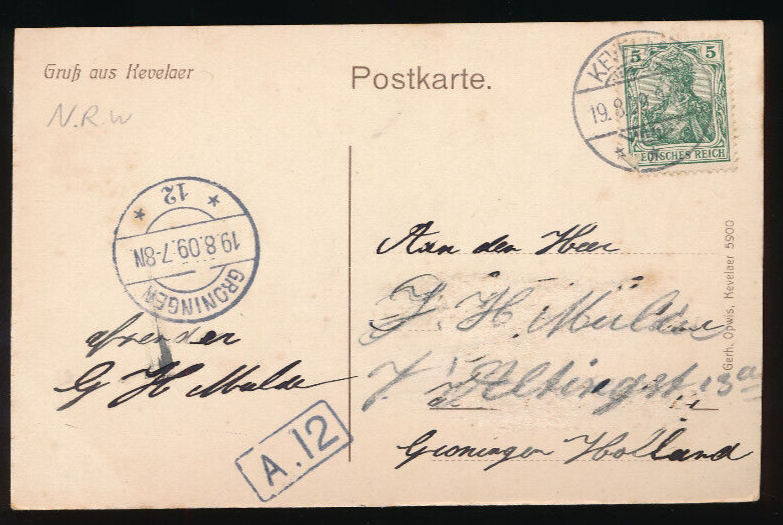 Gruß aus Kevelaer
Postkarte.
N.R.W
KEVELAER
19.8.09
5 5
DEUTSCHES REICH
12
19.8.09.7-8N
GRONINGEN
afzender
G H Mulder
A.12
Aan den Heer
J. H. Mulder
Groningen Holland
Gerh. Opwis, Kevelaer 5900